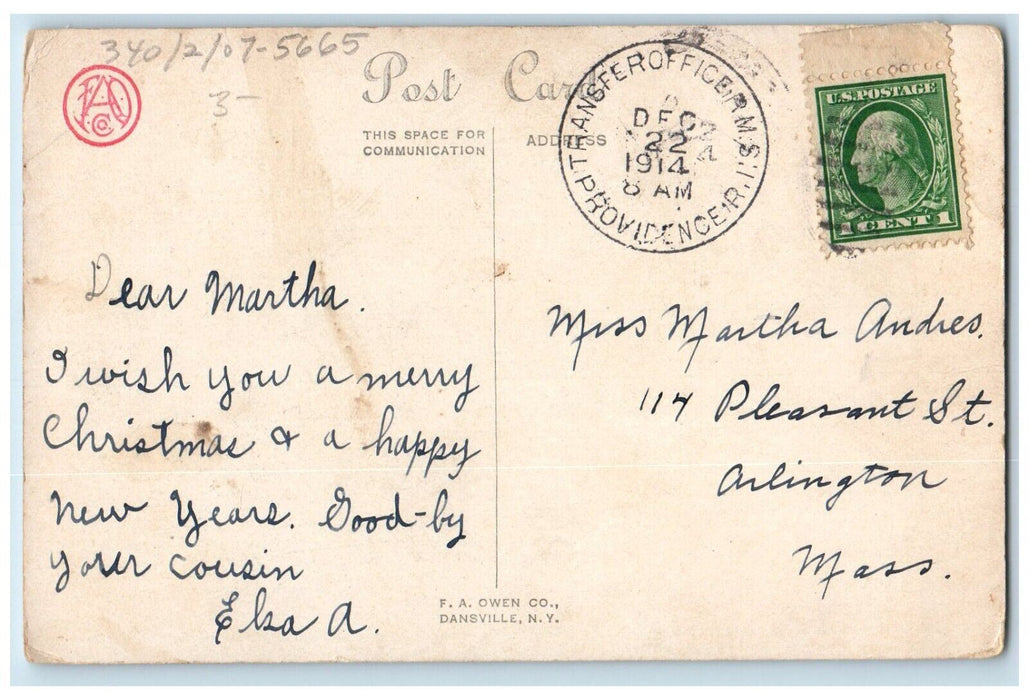 340/2/07-5665
3-
FAO Co.
Post Card
THIS SPACE FOR
COMMUNICATION
ADDRESS
TRANSFER OFFICE, R.M.S.
DEC
22
1914
8 AM
PROVIDENCE, R.I.
U.S. POSTAGE
1 CENT 1
Dear Martha.
I wish you a merry
Christmas & a happy
New Years. Good-by
your cousin
Elsa A.
Miss Martha Andres.
114 Pleasant St.
Arlington
Mass.
F. A. OWEN CO.,
DANSVILLE, N.Y.